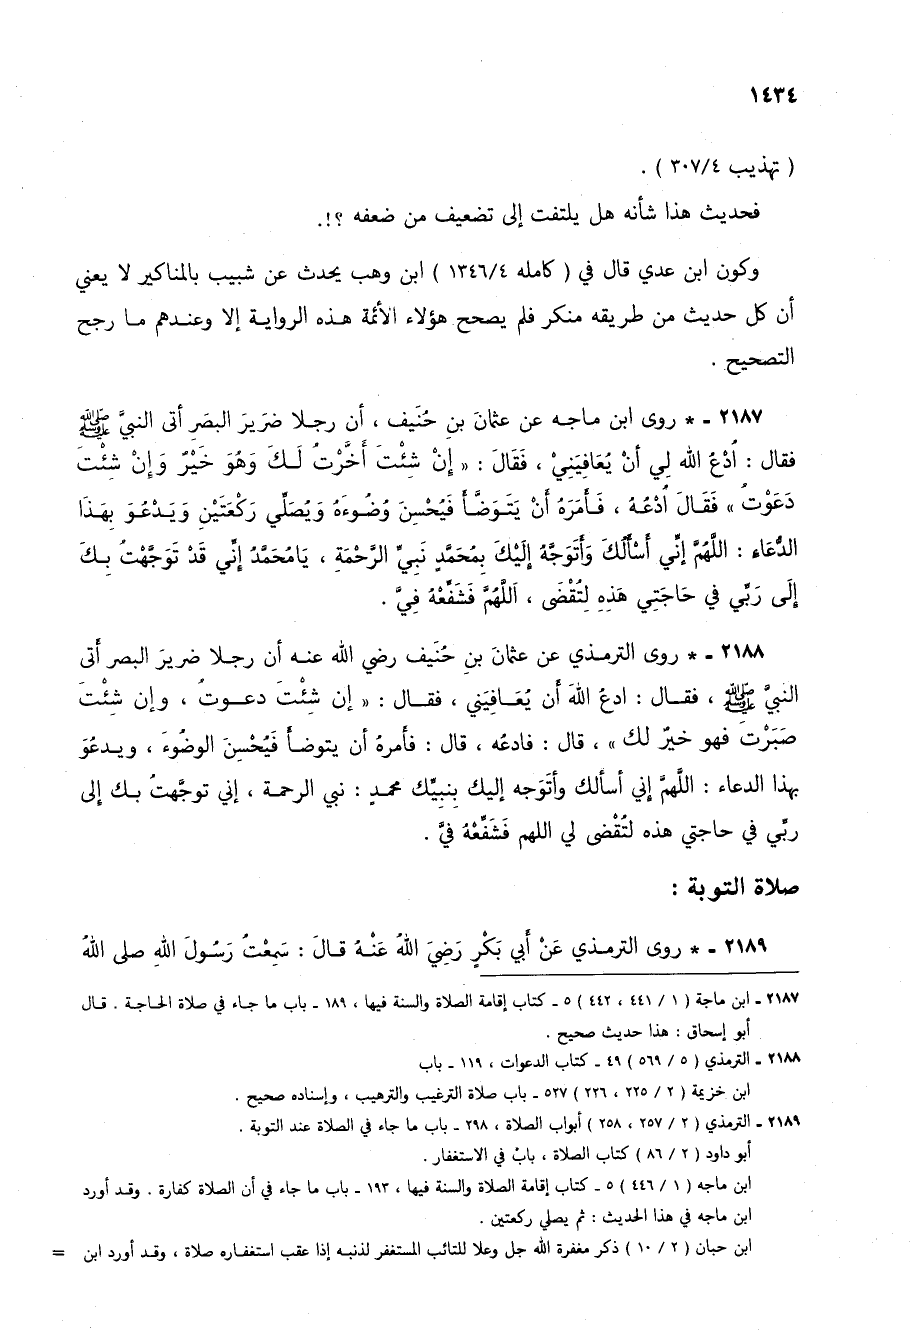 ١٤٣٤
( تهذيب ٣٠٧/٤ ) .
فحديث هذا شأنه هل يلتفت إلى تضعيف من ضعفه ؟!.
وكون ابن عدي قال في ( كامله ١٣٤٦/٤ ) ابن وهب يحدث عن شبيب بالمناكير لا يعني
أن كل حديث من طريقه منكر فلم يصحح هؤلاء الأئمة هذه الرواية إلا وعندهم ما رجح
التصحيح .
٢١٨٧ - * روى ابن ماجه عن عثمانَ بنِ حُنَيف ، أن رجلا ضَرَيرَ البصَرِ أتى النبيَّ ﷺ
فقال : اُدْعُ الله لِي أنْ يُعَافِيَنِيْ ، فَقَالَ : « إِنْ شئْتَ أخَّرْتُ لَكَ وَهُوَ خَيْرٌ وَإنْ شِئْتَ
دَعَوْتُ » فَقَالَ اُدْعُهُ ، فَأمَرَهُ أنْ يَتَوَضَّأ فَيُحْسِنَ وُضُوءَهُ وَيُصَلِّي رَكْعَتَيْنِ وَيَدْعُوَ بِهَذَا
الدُّعَاء : اللَّهُمَّ إنِّي أسْأَلُكَ وَأتَوَجَّهُ إلَيْكَ بِمُحَمَّدٍ نَبِيِّ الرَّحْمَةِ ، يَامُحَمَّدُ إنِّي قَدْ تَوَجَّهْتُ بِكَ
إلَى رَبِّي في حَاجَتِي هَذِهِ لِتُقْضَى ، اَللَّهُمَّ فَشَفِّعْهُ فِيَّ .
٢١٨٨ - * روى الترمذي عن عثمانَ بنِ حُنَيف رضي الله عنه أن رجلا ضريرَ البصر أتى
النبيَّ ﷺ ، فقال : ادعُ اللهَ أن يُعَافِيَني ، فقال : « إن شئْتَ دعوتُ ، وإن شِئْتَ
صَبَرْتَ فهو خيرٌ لك » ، قال : فادعُه ، قال : فأمرهُ أن يتوضأ فَيُحْسِنَ الوضُوءَ ، ويدعُوَ
بهذا الدعاء : اللَّهمَّ إني أسألك وأتَوَجه إليك بِنبيِّك محمدٍ : نبي الرحمة ، إني توجَّهتُ بك إلى
ربِّي في حاجتي هذه لتُقْضى لي اللهم فَشَفِّعْهُ فيَّ .
صلاة التوبة :
٢١٨٩ - * روى الترمذي عَنْ أبي بَكْرٍ رَضِيَ اللهُ عَنْهُ قالَ : سَمِعْتُ رَسُولَ اللهِ صلى اللهُ
٢١٨٧ - ابن ماجة ( ١ / ٤٤١ ، ٤٤٢ ) ٥ - كتاب إقامة الصلاة والسنة فيها ، ١٨٩ - باب ما جاء في صلاة الحاجة . قال
أبو إسحاق : هذا حديث صحيح .
٢١٨٨ - الترمذي ( ٥ / ٥٦٩ ) ٤٩ - كتاب الدعوات ، ١١٩ - باب
ابن خزيمة ( ٢ / ٢٢٥ ، ٢٢٦ ) ٥٢٧ - باب صلاة الترغيب والترهيب ، وإسناده صحيح .
٢١٨٩ - الترمذي ( ٢ / ٢٥٧ ، ٢٥٨ ) أبواب الصلاة ، ٢٩٨ - باب ما جاء في الصلاة عند التوبة .
أبو داود ( ٢ / ٨٦ ) كتاب الصلاة ، بابٌ في الاستغفار .
ابن ماجه ( ١ / ٤٤٦ ) ٥ - كتاب إقامة الصلاة والسنة فيها ، ١٩٣ - باب ما جاء في أن الصلاة كفارة . وقد أورد
ابن ماجه في هذا الحديث : ثم يصلي ركعتين .
ابن حبان ( ٢ / ١٠ ) ذكر مغفرة الله جل وعلا للتائب المستغفر لذنبه إذا عقب استغفاره صلاة ، وقد أورد ابن =